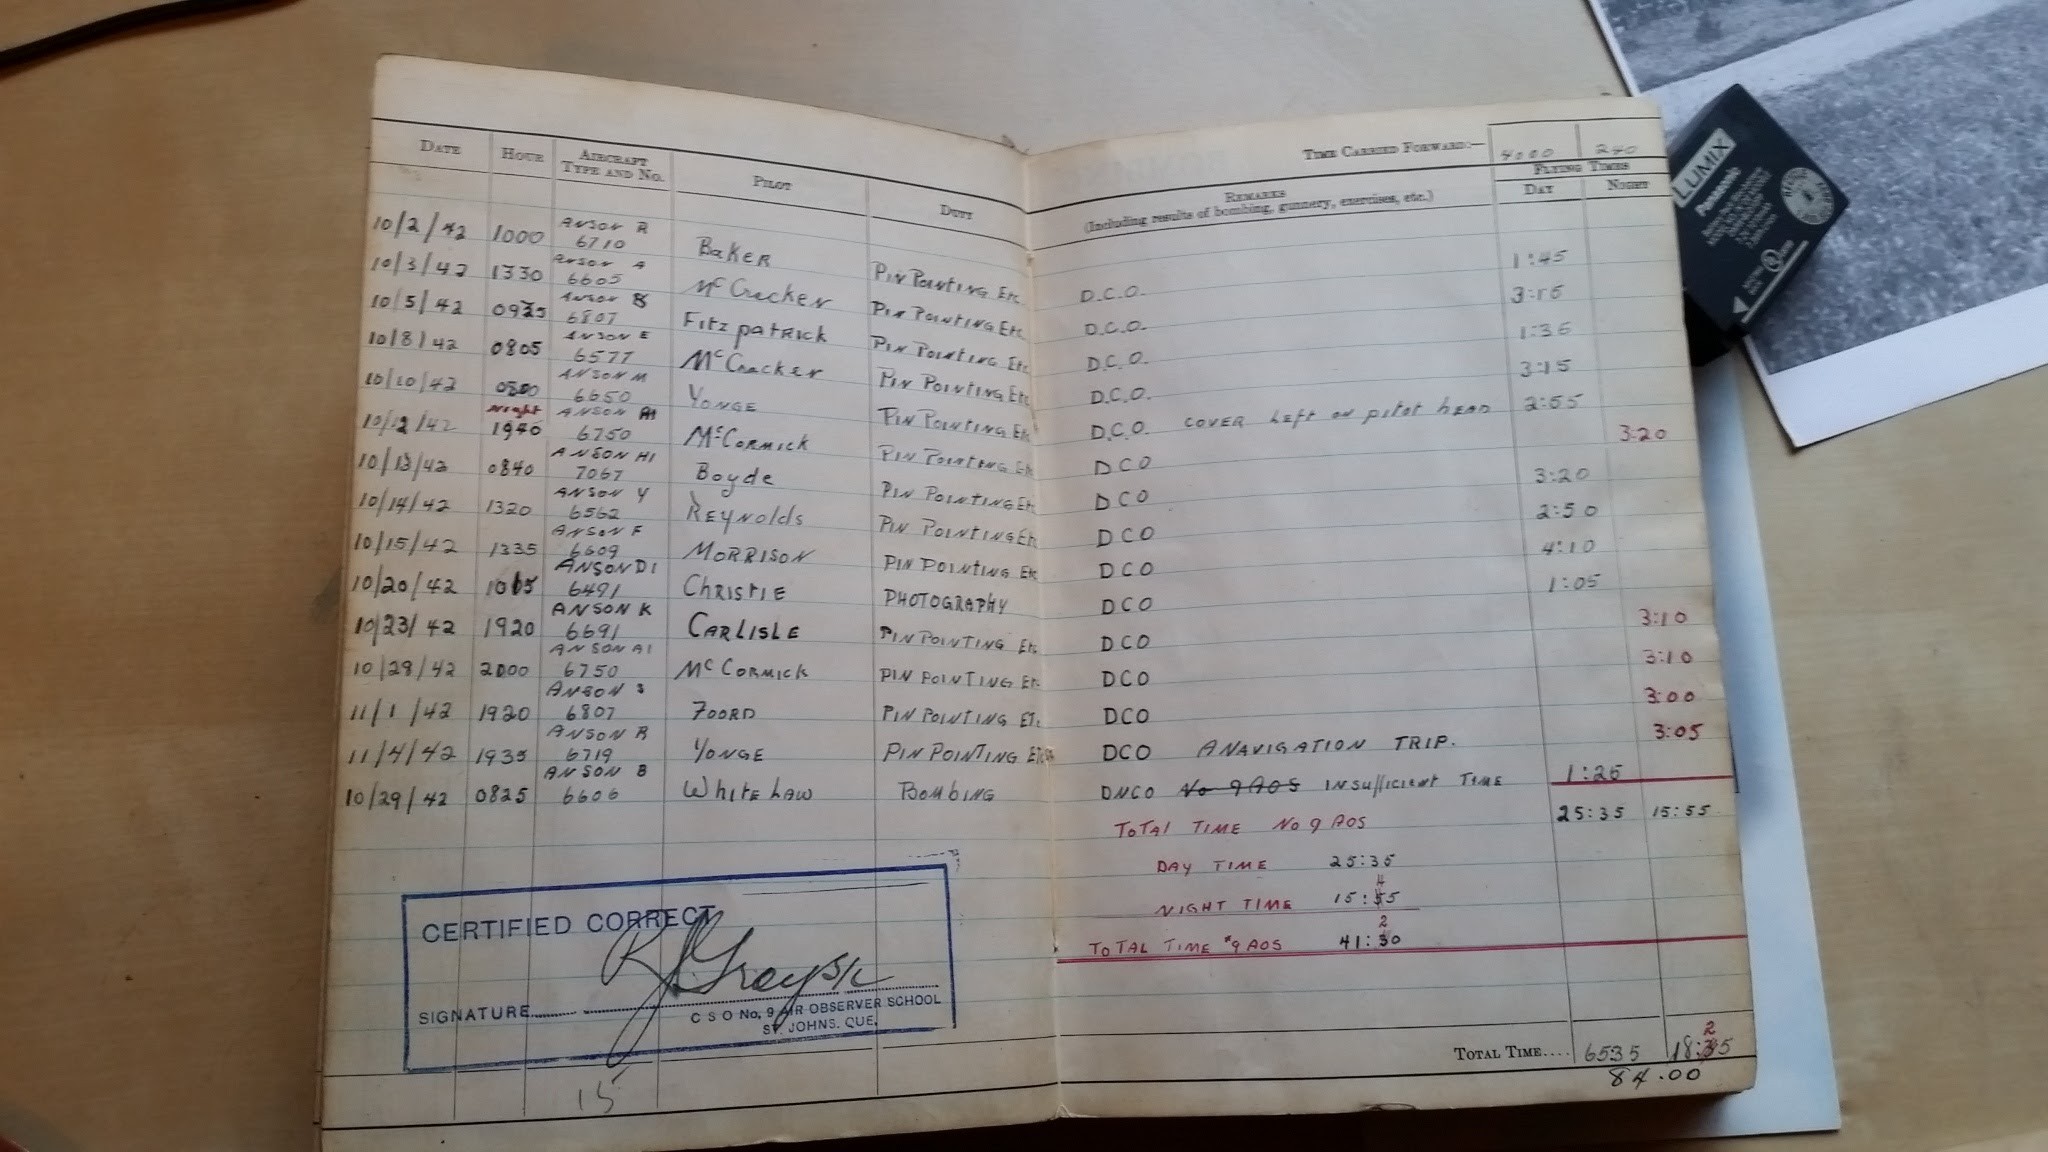 DATE HOUR AIRCRAFT TYPE AND NO. PILOT DUTY
TIME CARRIED FORWARD:— 4000 240
REMARKS (Including results of bombing, gunnery, exercises, etc.) FLYING TIMES DAY NIGHT
10/2/42 1000 ANSON R 6710 Baker PIN POINTING ETC. D.C.O. 1:45
10/3/42 1330 ANSON A 6605 McCracken PIN POINTING ETC. D.C.O.
10/5/42 ANSON 6807 Fitzpatrick PIN POINTING ETC. D.C.O.
10/8/42 0805 ANSON E 6577 McCracken PIN POINTING ETC. D.C.O. 3:15
10/10/42 ANSON M 6650 YONGE PIN POINTING ETC D.C.O. COVER Left on pitot HEAD 2:55
10/12/42 Night ANSON 6750 McCORMICK PIN POINTING DCO 3:20
10/13/42 0840 ANSON H1 7067 Boyde PIN POINTING ETC. DCO 3:20
10/14/42 1320 ANSON Y 6562 REYNOLDS PIN POINTING ETC. DCO 2:50
10/15/42 1335 ANSON F 6609 MORRISON PIN POINTING ETC DCO 4:10
10/20/42 ANSON D1 6491 CHRISTIE PHOTOGRAPHY DCO 1:05
10/23/42 1920 ANSON K 6691 CARLISLE PIN POINTING ETC DCO 3:10
10/28/42 2000 ANSON A1 6750 McCORMICK PIN POINTING ETC. DCO 3:10
11/1/42 1920 ANSON 6807 FOORD PIN POINTING ETC. DCO 3:00
11/4/42 1935 ANSON R 6719 YONGE PIN POINTING DCO A NAVIGATION TRIP. 3:05
10/29/42 0825 ANSON B 6606 WHITELAW BOMBING DNCO No 9 AOS INSUFFICIENT TIME 1:25
TOTAL TIME NO 9 AOS 25:35 15:55
DAY TIME 25:35
NIGHT TIME 15:45
TOTAL TIME #9 AOS 41:20
CERTIFIED CORRECT
SIGNATURE
C S O No, 9 AIR OBSERVER SCHOOL
ST. JOHNS. QUE.
TOTAL TIME.... 6535 18:25
84.00
15
LUMIX
Panasonic